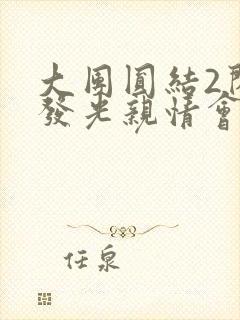 大团圓結2
發光親情會
任泉